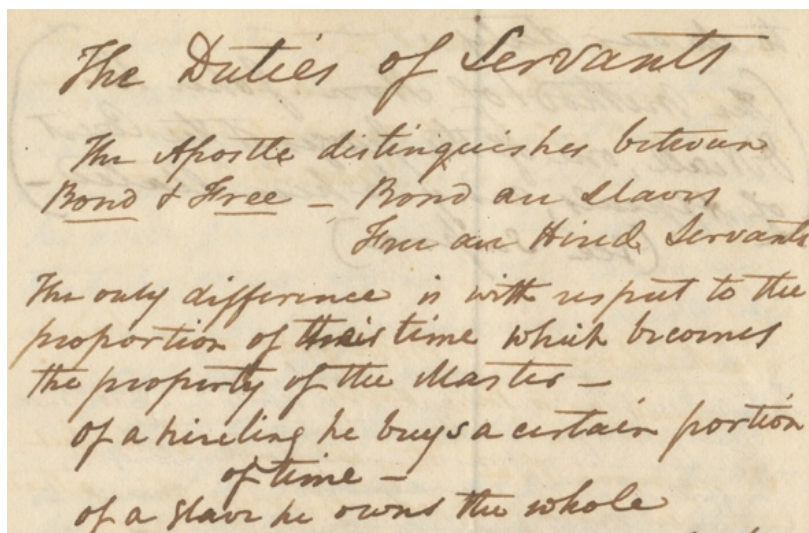 The Duties of Servants
The Apostle distinguishes between
Bond & Free — Bond are Slaves
Free are Hired Servants
The only difference is with respect to the
proportion of their time which becomes
the property of the Master —
of a hireling he buys a certain portion
of time —
of a slave he owns the whole